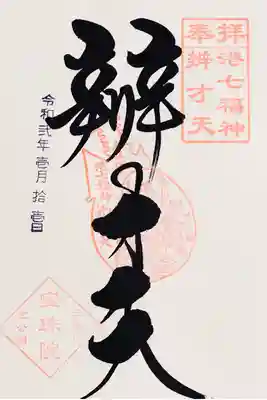 奉拝
港七福神
辨才天
辨才天
令和弐年壹月拾壹日
宝珠院